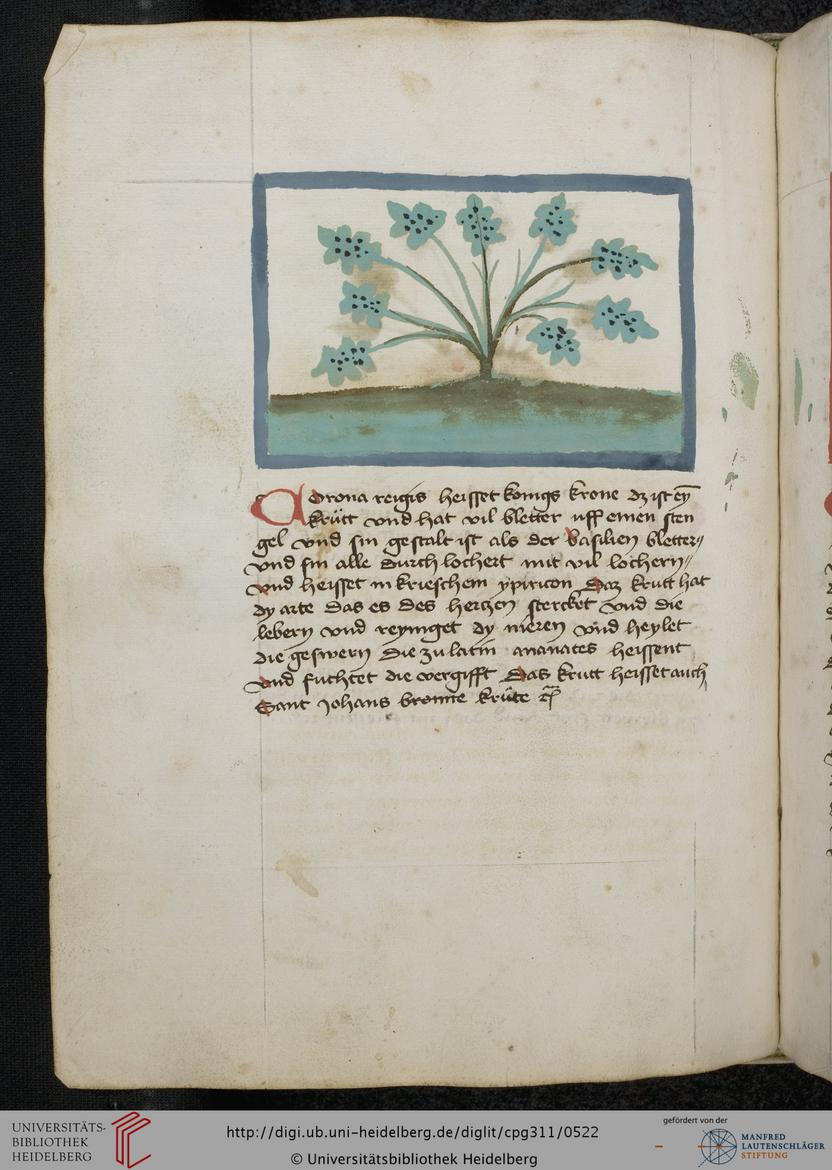 Corona reigis heisset konigs krone dz ist ey̅
krütt vnd hat vil bletter uff einen sten
gel vnd sin gestalt ist als der basilien bletter
vnd sin alle durch lochert mit vil lochern
vnd heisset in krieschem ypiricon Daz krutt hat
dy arte das es des hertzen stercket vnd die
lebern vnd reyniget dy nieren vnd heylet
die geswern die zu latin ananates heissent
vnd fuchtet die vergifft Das krutt heisset auch
Sant Johans bronne krüte
UNIVERSITÄTS-
BIBLIOTHEK
HEIDELBERG
http://digi.ub.uni-heidelberg.de/diglit/cpg311/0522
© Universitätsbibliothek Heidelberg
gefördert von der
MANFRED
LAUTENSCHLÄGER
STIFTUNG